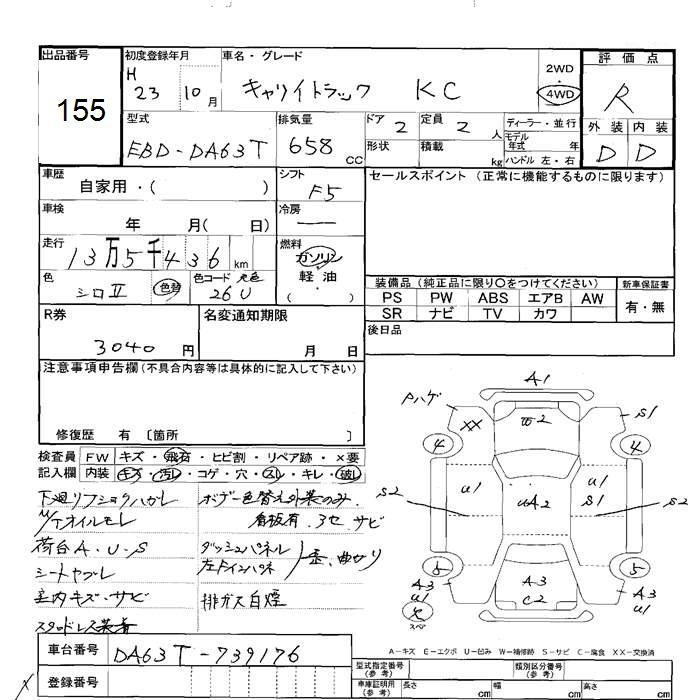 出品番号 初度登録年月 車名・グレード 評価点
155 H 23 10月 キャリイトラック KC 2WD・4WD R
型式 排気量 ドア 2 定員 2人 ディーラー・並行 外装 内装
EBD-DA63T 658 CC 形状 積載 kg モデル年式 年 ハンドル 左・右 D D
車歴 シフト セールスポイント(正常に機能するものに限ります)
自家用・( ) F5
車検 冷房
年 月( 日) —
走行 燃料
13万5千436 km ガソリン・軽油・( )
色 色替 色コード 元色 装備品(純正品に限り〇をつけてください) 新車保証書
シロⅡ 26U PS PW ABS エアB AW 有・無
SR ナビ TV カワ
R券 名変通知期限 後日品
3040円 月 日
注意事項申告欄(不具合内容等は具体的に記入して下さい)
修復歴 有 〔箇所 〕
検査員 FW キズ・飛石・ヒビ割・リペア跡・×要
記入欄 内装 キズ・汚レ・コゲ・穴・スレ・キレ・破レ
下廻リフショクハガレ ボデー色替え外装のみ
M/Tオイルモレ 看板有.3セ サビ
荷台A.U.S ダッシュパネル
シートヤブレ 左ドインパネ 歪、曲がり
室内キズ・サビ 排ガス白煙
スタッドレス装着
A1
Pハゲ XX W2 S1
4 4
S2 U1 UA2 U1 S1 S2
5 5
A3 U1 A3 C2 A3 U1
スペ
A-キズ E-エクボ U-凹み W-補修跡 S-サビ C-腐食 XX-交換済
車台番号 DA63T-739176
登録番号
型式指定番号(参考) 類別区分番号(参考)
車庫証明用(参考) 長さ cm 幅 cm 高さ cm